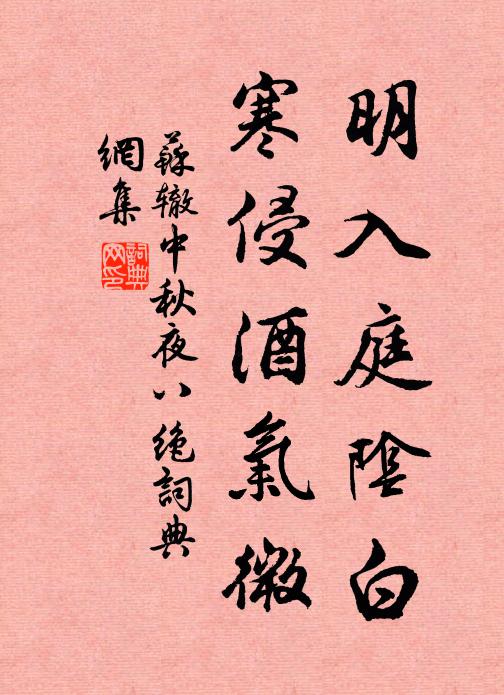 明入庭陰白
寒侵酒氣微
蘇轍中秋夜八絶詞典
網集
詞典
网印